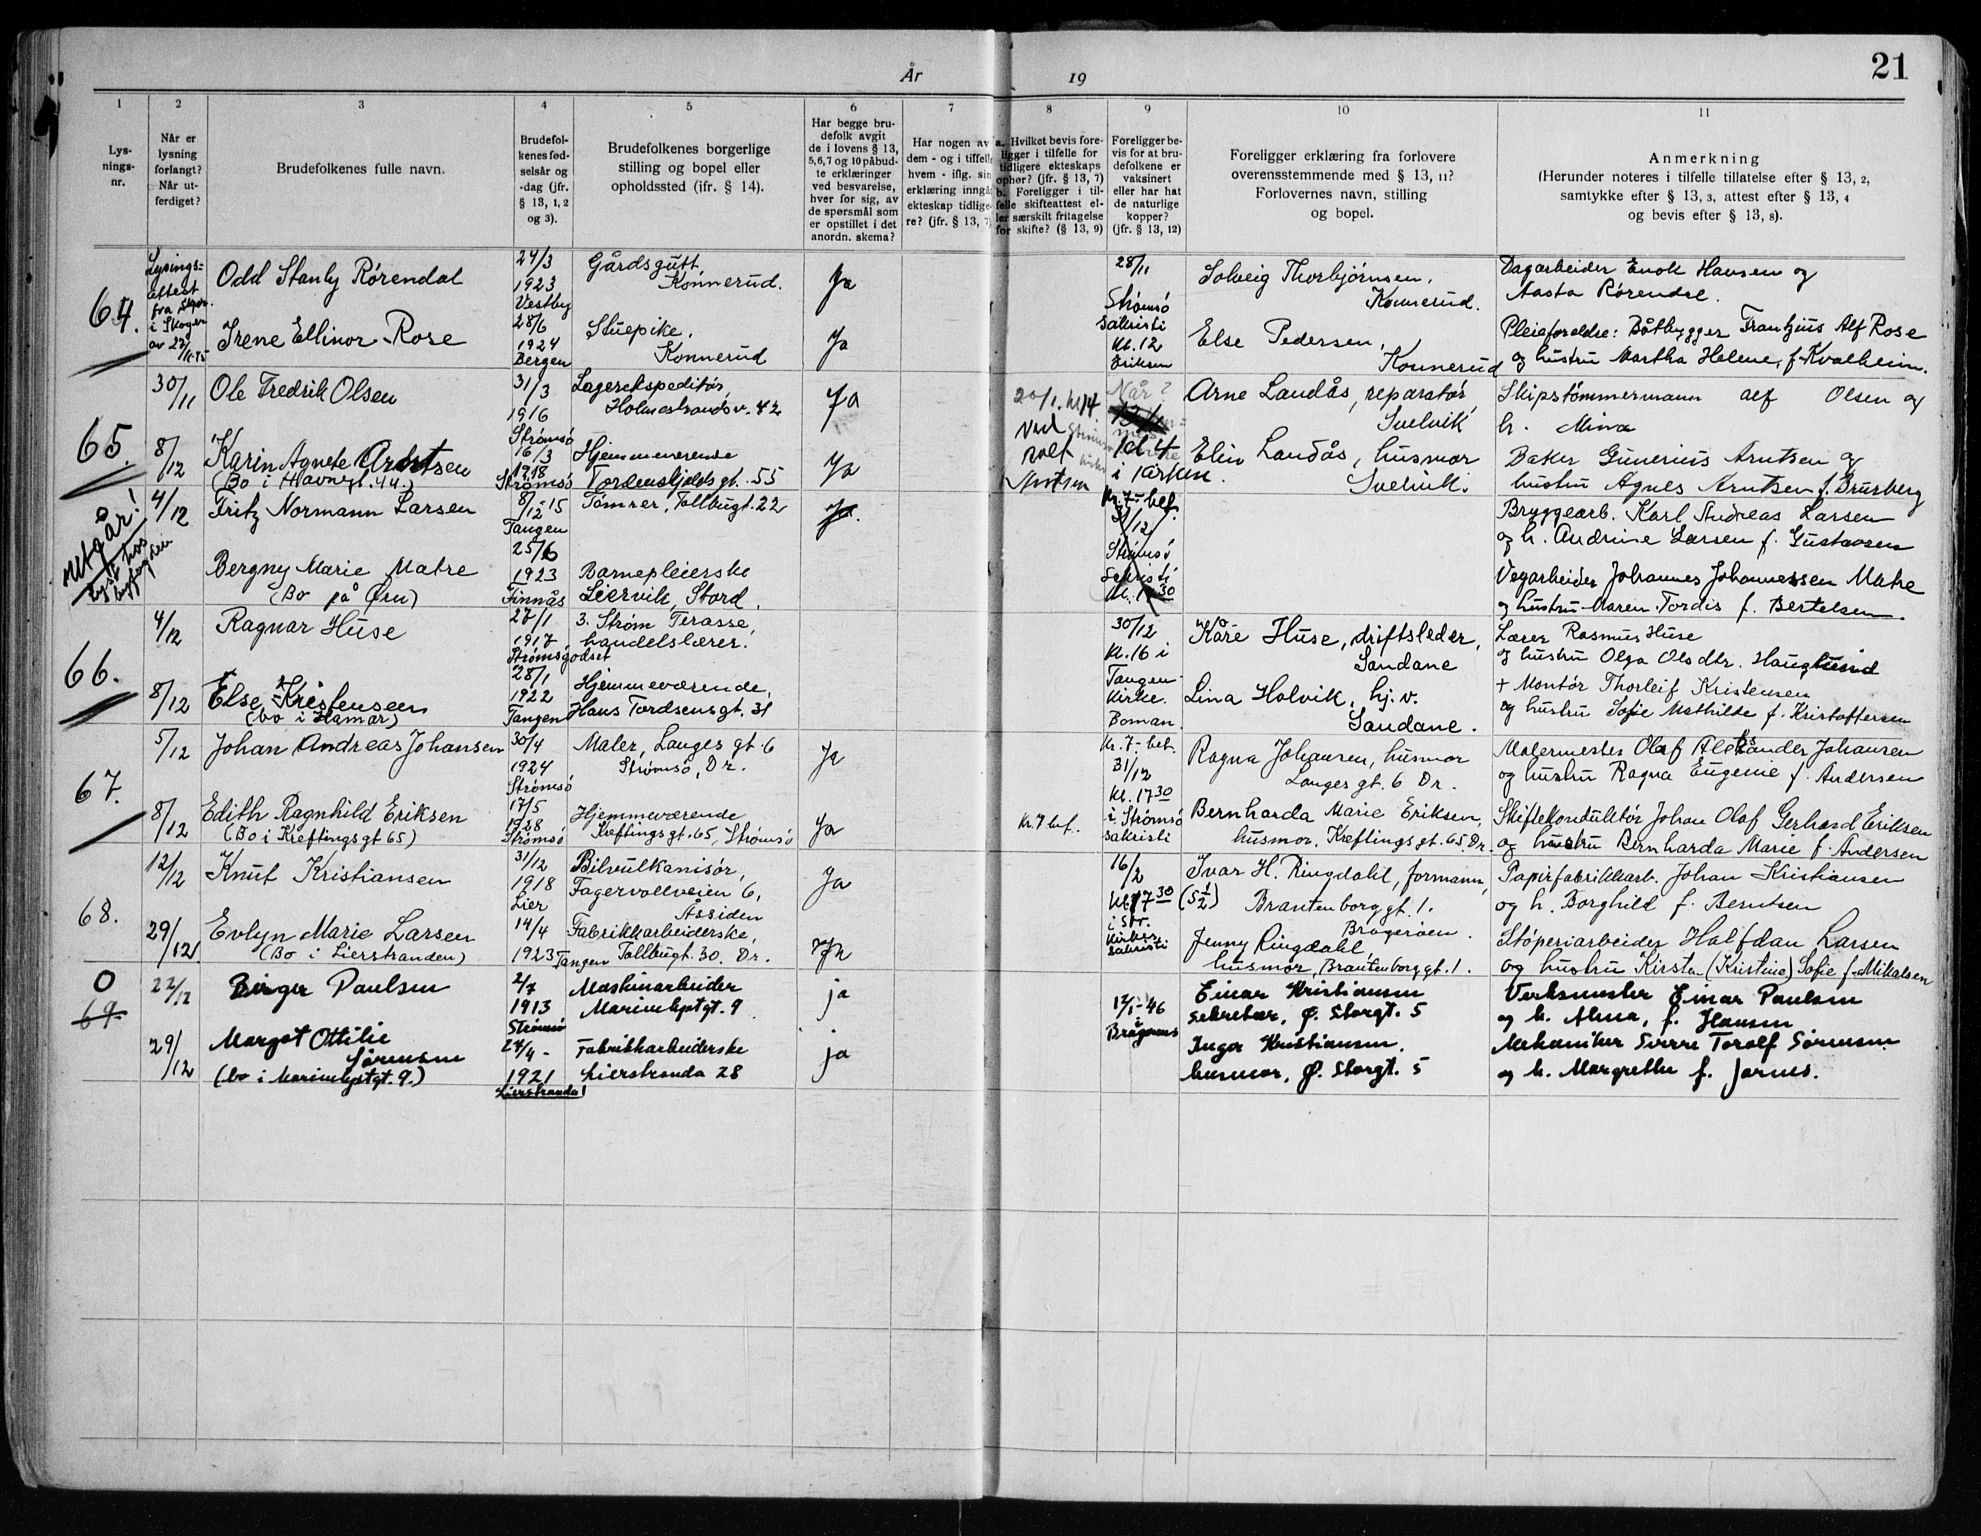 År 19
21
1 2 3 4 5 6 7 8 9 10 11
Lys-
nings-
nr.
Når er
lysning
forlangt?
Når ut-
ferdiget?
Brudefolkenes fulle navn.
Brudefol-
kenes fød-
selsår og
-dag (jfr.
§ 13, 1, 2
og 3).
Brudefolkenes borgerlige
stilling og bopel eller
opholdssted (jfr. § 14).
Har begge bru-
defolk avgit
de i lovens § 13,
5,6,7 og 10 påbud-
te erklæringer
ved besvarelse,
hver for sig, av
de spørsmål som
er opstillet i det
anordn. skema?
Har nogen av
dem - og i tilfelle
hvem - iflg. sin
erklæring inngå
ekteskap tidlige-
re? (jfr. § 13, 7)
a. Hvilket bevis fore-
ligger i tilfelle for
tidligere ekteskaps
ophør? (jfr. § 13, 7)
b. Foreligger i til-
felle skifteattest el-
ler særskilt fritagelse
for skifte? (§ 13, 9)
Foreligger be-
vis for at bru-
defolkene er
vaksinert
eller har hat
de naturlige
kopper?
(jfr. § 13, 12)
Foreligger erklæring fra forlovere
overensstemmende med § 13, 11?
Forlovernes navn, stilling
og bopel.
Anmerkning
(Herunder noteres i tilfelle tillatelse efter § 13, 2,
samtykke efter § 13, 3, attest efter § 13, 4
og bevis efter § 13, 8).
64.
Lysings-
attest
fra
i Skoger
av
Odd Stanly Rørendal
24/3
1923
Vestby
Gårdsgutt
Konnerud.
Ja
28/11
Strømsø
sakristi
kl. 12
Eriksen
Solveig Thorbjørnsen,
Konnerud.
Dagarbeider Enok Hansen og
Aasta Rørendal.
Irene Ellinor Rose
28/6
1924
Bergen
Stuepike.
Konnerud
Ja
Else Pedersen,
Konnerud
Pleieforeldre: Båtbygger Frantzius Alf Rose
og hustru Martha Helene, f. Kvalheim.
65.
30/11
Ole Fredrik Olsen
31/3
1916
Strømsø
Lagerekspeditør
Holmestrandsv. 42
Ja
20/1. kl 14.
Ved
Rolf
Arntsen
Når?
kl 4
i kirken.
Arne Landås, reparatør,
Svelvik
Skipstømmermann Olsen og
h. Mina
8/12
Karin Agnete Arntsen
(Bo i Havnegt. 44.)
16/3
1918
Strømsø
Hjemmeværende
Tordenskjolds gt. 55
Ja
Elin Landås, husmor
Svelvik.
Baker Gunerius Arntsen og
hustru Agnes Arntsen f. Brusberg
utgår!
lyst hos
byfogden
4/12
Fritz Normann Larsen
8/12-15
Tangen
Tømrer, Tollbugt. 22
Ja.
Kr. 7- bet.
31/12
Strømsø
Sakristi
Bryggearb. Karl Andreas Larsen
og h. Andrine Larsen f. Gustavsen
Bergny Marie Matre
(Bo på Øren)
25/6
1923
Finnås
Barnepleierske
Leirvik, Stord.
Vegarbeider Johannes Johannessen Matre
og hustru Maren Tordis f. Bertelsen.
66.
4/12
Ragnar Huse
27/1
1917
Strømsgodset
3. Strøm Terasse,
handelslærer.
30/12
Kl. 16 i
Tangen
Kirke.
Boman.
Kåre Huse, driftsleder,
Sandane
Lærer Rasmus Huse
og hustru Olga Olsdtr. Hauglund
8/12
Else Kristensen
(bo i Hamar)
28/1
1922
Tangen
Hjemmeværende,
Hans Tordsensgt. 31
Lina Holvik, hj.v.
Sandane.
+ Montør Thorleif Kristensen
og hustru Sofie Mathilde f. Kristoffersen
67.
5/12
Johan Andreas Johansen
30/4
1924
Strømsø
Maler, Langes gt. 6
Strømsø, Dr.
Ja
Kr. 7- bet.
31/12
Kl. 17 30
i Strømsø
sakristi
Ragna Johansen, husmor
Langes gt. 6 Dr.
Malermester Olaf Aleksander Johansen
og hustru Ragna Eugenie f. Andersen
8/12
Edith Ragnhild Eriksen
(Bo i Kieftingsgt 65)
17/5
1928
Strømsø
Hjemmeværende
Kieftingsgt. 65, Strømsø
Ja
Kr. 7 bet.
Bernharda Marie Eriksen,
husmor, Kieftingsgt. 65 Dr.
Skiftekonduktør Johan Olaf Gerhard Eriksen
og hustru Bernharda Marie f. Andersen
68.
12/12
Knut Kristiansen
31/12
1918
Lier
Bilvulkanisør,
Fagervollveien 6,
Åssiden
Ja
16/2
Kl 17 30 (5½)
i Str.
Kirkes
sakristi
Ivar H. Ringdahl, formann,
Brantenborggt. 1.
Bragerøen.
Papirfabrikkarb. Johan Kristiansen
og h. Borghild f. Berntsen
29/12
Evlyn Marie Larsen
(Bo i Lierstranden)
14/4
1923 Tangen
Fabrikkarbeiderske,
Tollbugt. 30. Dr.
Ja
Jenny Ringdahl,
husmor, Brantenborggt. 1.
Støperiarbeider Halfdan Larsen
og hustru Kirsta (Kristine) Sofie f. Mikalsen
0
69.
22/12
Birger Paulsen
2/7
1913
Strømsø
Maskinarbeider
Marienlystgt. 9
ja
12/1-46
Bragernes
Einar Kristiansen
sekretær, Ø. Storgt. 5
Verksmester Einar Paulsen
og h. Alma, f. Hansen
29/12
Margot Ottilie
Sørensen
(bo i Marienlystgt. 9.)
24/4-
1921
Lierstranda!
Fabrikkarbeiderske
Lierstranda 28
ja
Inger Kristiansen.
husmor, Ø. Storgt. 5
Mekaniker Sverre Torolf Sørensen
og h. Margrethe f. Jarnes.